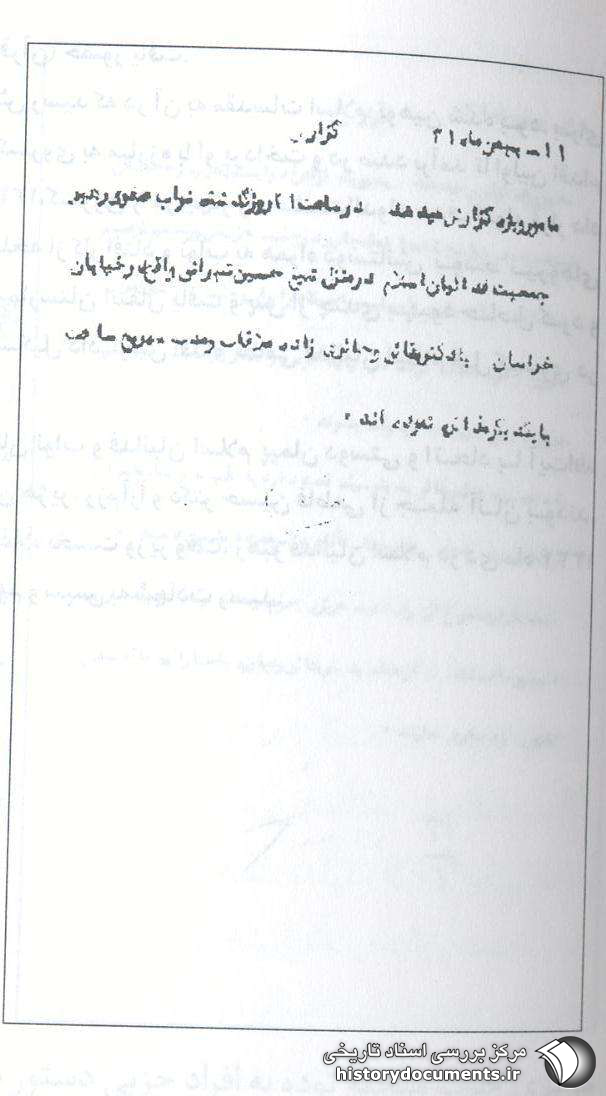 ۱۱- بهمن ماه ۳۱ گزارش
مامور ویژه گزارش میدهد در ساعت ۱۲ روز گذشته نواب صفوی رهبر
جمعیت فدائیان اسلام در منزل شیخ حسین واقع در خیابان
خراسان با دکتر بقائی و حائری زاده ملاقات و مدت ساعت
با یکدیگر مذاکره نموده اند .
مرکز بررسی اسناد تاریخی
historydocuments.ir